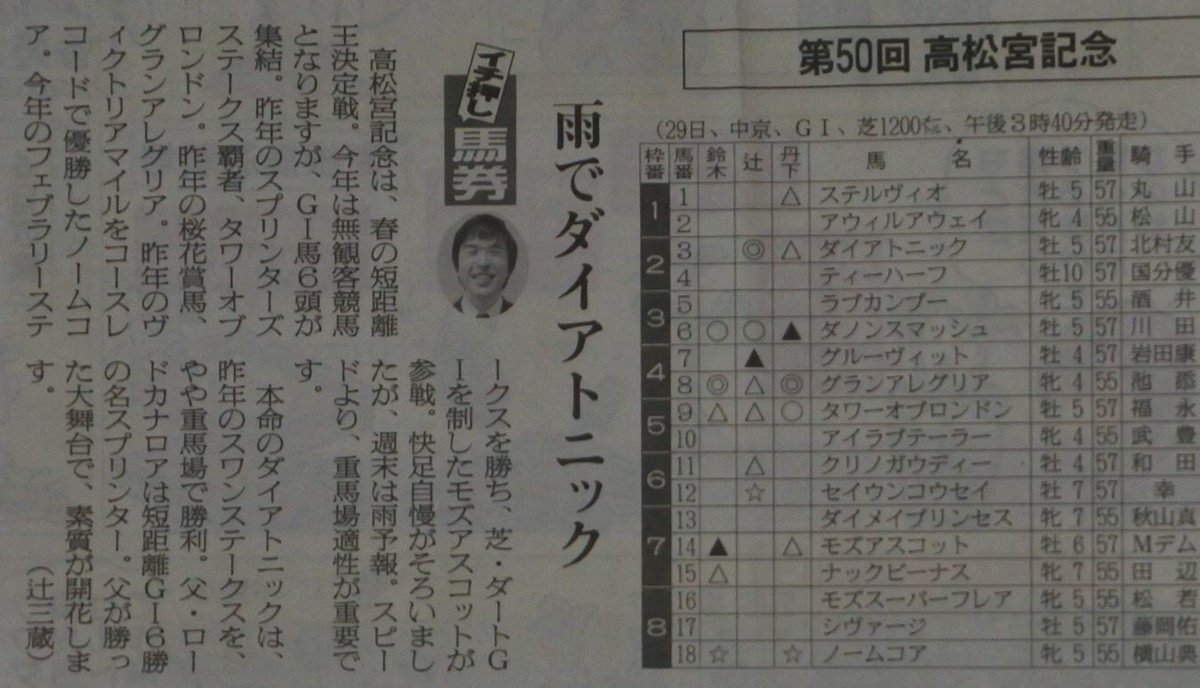 第50回 高松宮記念
(29日、中京、GⅠ、芝1200㍍、午後3時40分発走)
枠番 馬番 鈴木 辻 丹下 馬名 性齢 重量 騎手
1 1 △ ステルヴィオ 牡5 57 丸山
2 アウィルアウェイ 牝4 55 松山
2 3 ◎ △ ダイアトニック 牡5 57 北村友
4 ティーハーフ 牡10 57 国分優
3 5 ラブカンプー 牝5 55 酒井
6 ○ ○ ▲ ダノンスマッシュ 牡5 57 川田
4 7 ▲ グルーヴィット 牡4 57 岩田康
8 ◎ △ ◎ グランアレグリア 牝4 55 池添
5 9 △ △ ○ タワーオブロンドン 牡5 57 福永
10 アイラブテーラー 牝4 55 武豊
6 11 △ クリノガウディー 牡4 57 和田
12 ☆ セイウンコウセイ 牡7 57 幸
7 13 ダイメイプリンセス 牝7 55 秋山真
14 ▲ △ モズアスコット 牡6 57 Mデム
15 △ ナックビーナス 牝7 55 田辺
8 16 モズスーパーフレア 牝5 55 松若
17 シヴァージ 牡5 57 藤岡佑
18 ☆ ☆ ノームコア 牝5 55 横山典
雨でダイアトニック
イチ押し
馬券
高松宮記念は、春の短距離
王決定戦。今年は無観客競馬
となりますが、GⅠ馬6頭が
集結。昨年のスプリンターズ
ステークス覇者、タワーオブ
ロンドン。昨年の桜花賞馬、
グランアレグリア。昨年のヴ
ィクトリアマイルをコースレ
コードで優勝したノームコ
ア。今年のフェブラリーステ
ークスを勝ち、芝・ダートG
Ⅰを制したモズアスコットが
参戦。快足自慢がそろいまし
たが、週末は雨予報。スピー
ドより、重馬場適性が重要で
す。
本命のダイアトニックは、
昨年のスワンステークスを、
やや重馬場で勝利。父・ロー
ドカナロアは短距離GⅠ6勝
の名スプリンター。父が勝っ
た大舞台で、素質が開花しま
す。 (辻三蔵)